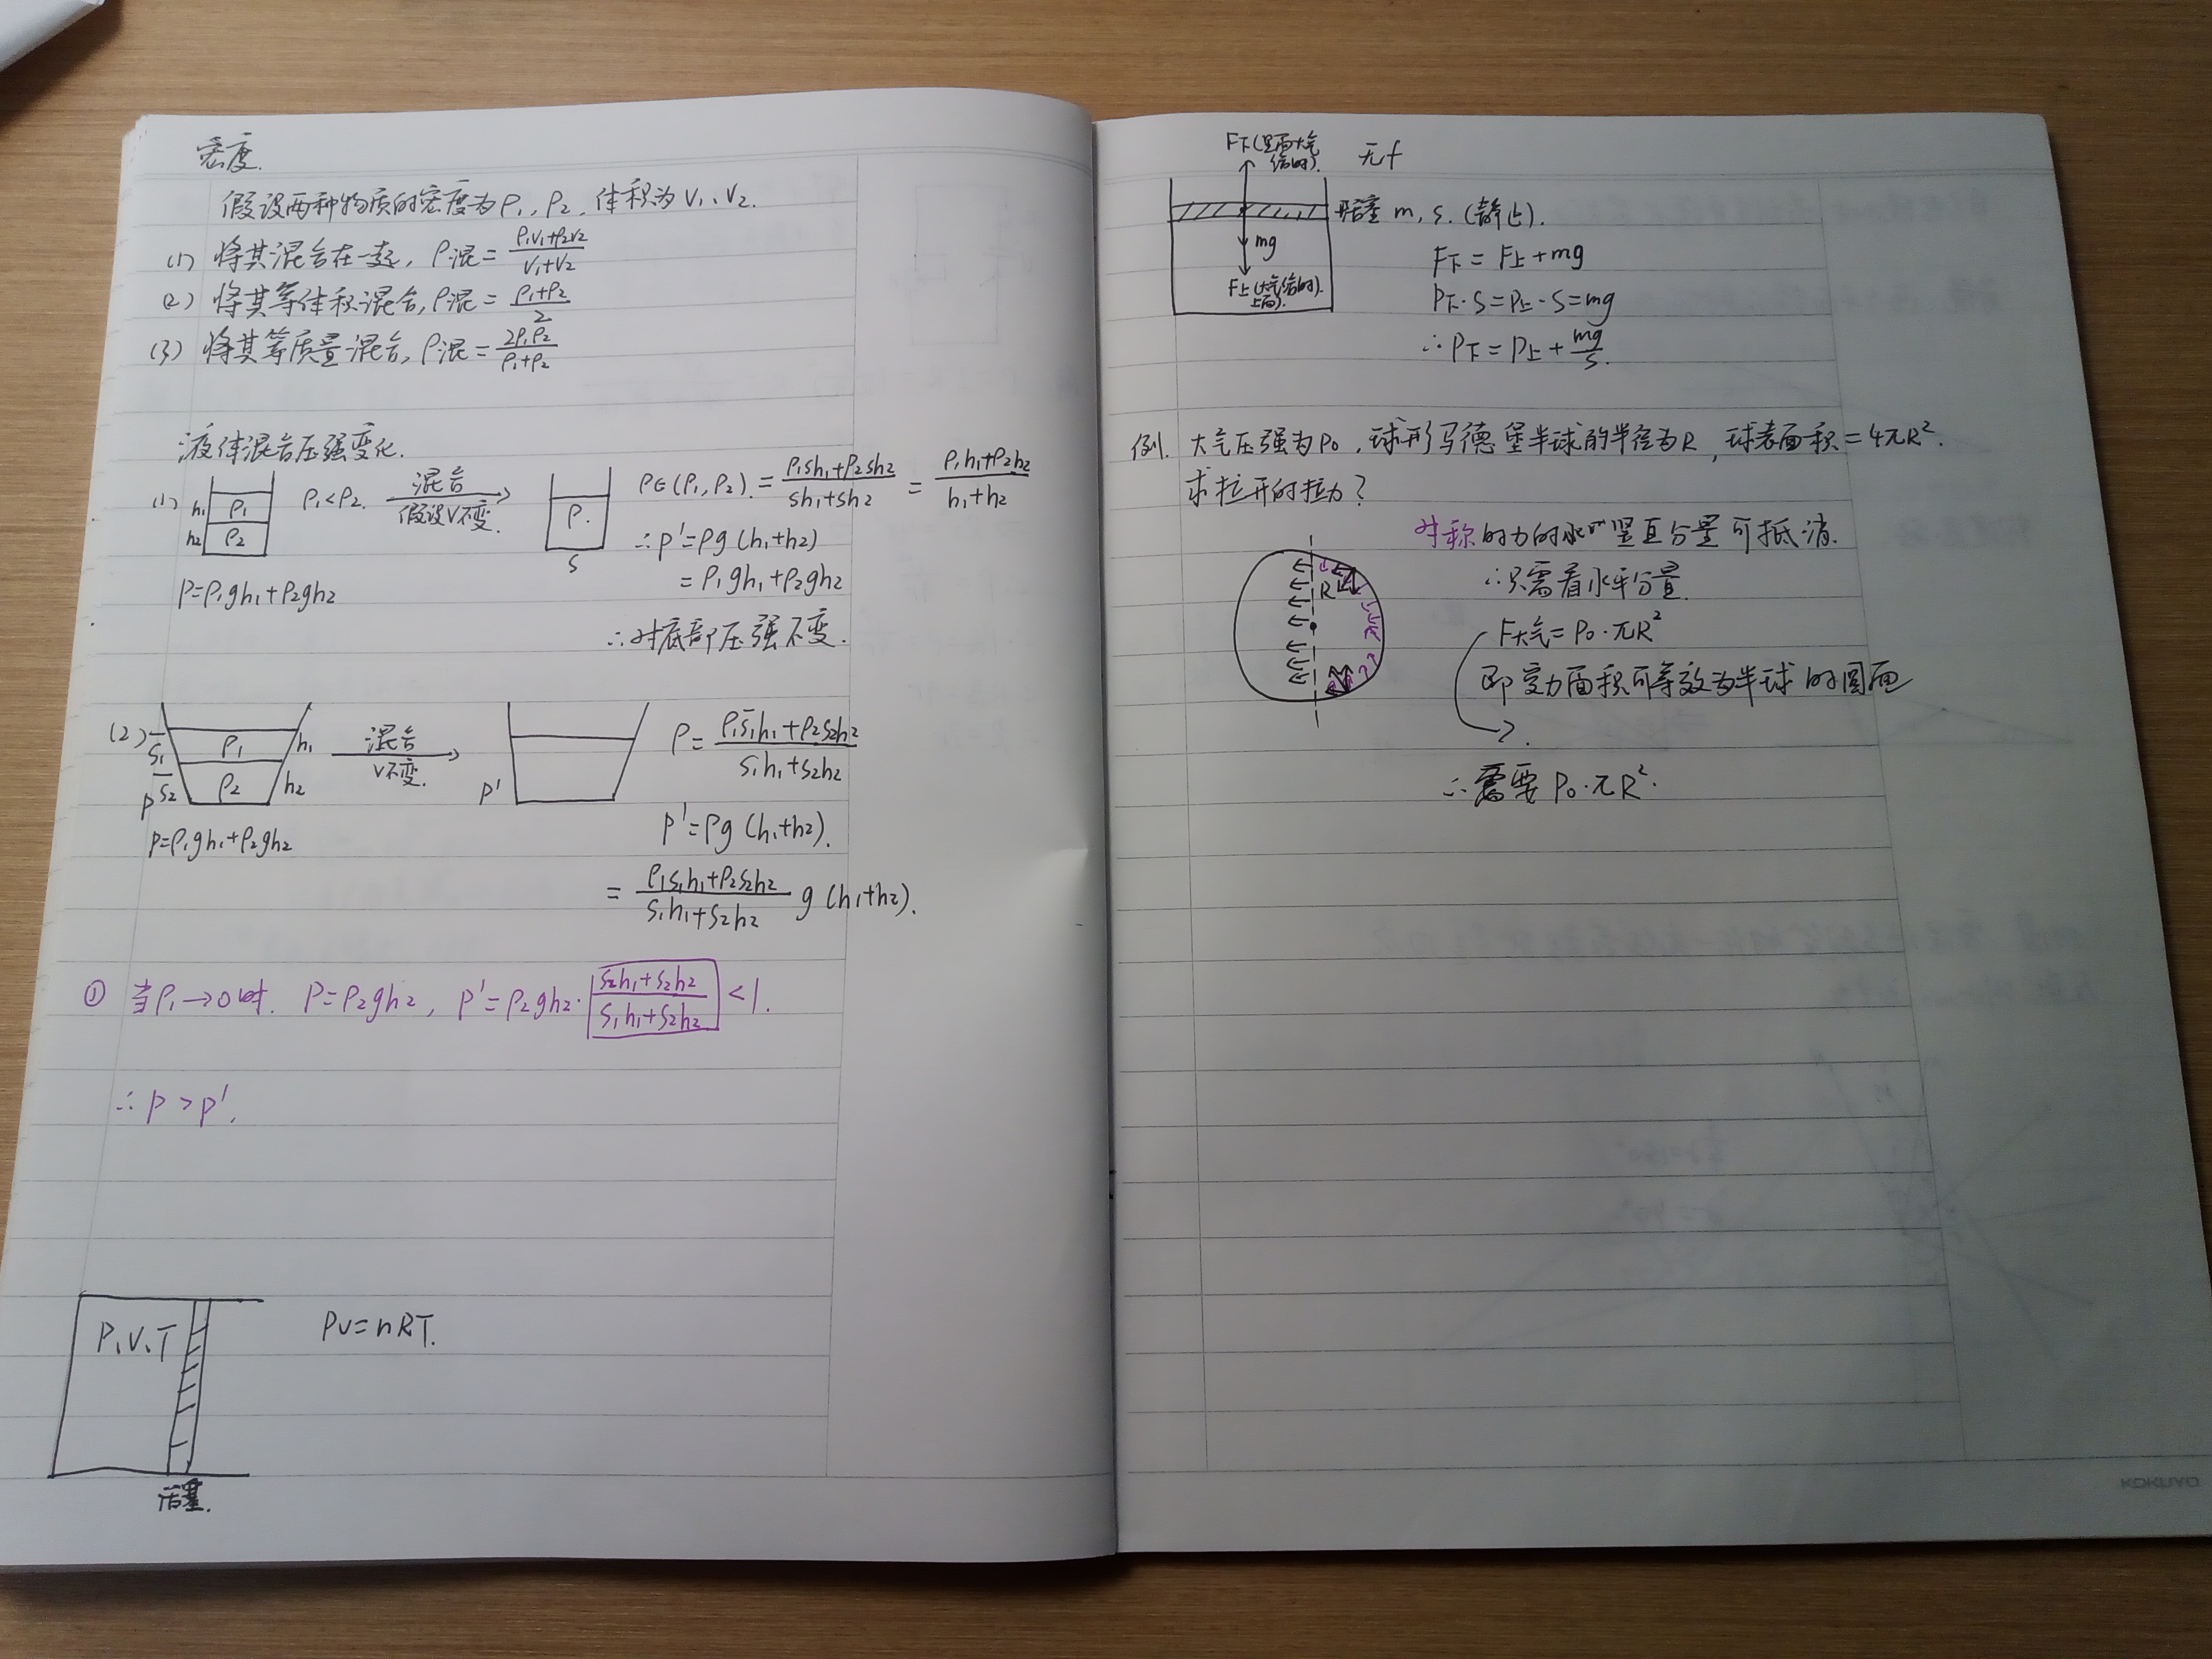 密度.
假设两种物质的密度为ρ₁, ρ₂, 体积为V₁、V₂.
(1) 将其混合在一起, ρ混=(ρ₁V₁+ρ₂V₂)/(V₁+V₂)
(2) 将其等体积混合, ρ混=(ρ₁+ρ₂)/2
(3) 将其等质量混合, ρ混=2ρ₁ρ₂/(ρ₁+ρ₂)
液体混合压强变化.
(1) h₁ ρ₁ h₂ ρ₂ ρ₁<ρ₂. 混合 假设V不变. ρ. S ρ∈(ρ₁,ρ₂). =(ρ₁sh₁+ρ₂sh₂)/(sh₁+sh₂) = (ρ₁h₁+ρ₂h₂)/(h₁+h₂)
∴p'=ρg(h₁+h₂)
p=ρ₁gh₁+ρ₂gh₂ =ρ₁gh₁+ρ₂gh₂
∴对底部压强不变.
(2) S̄₁ ρ₁ h₁ S̄₂ ρ₂ h₂ p 混合 V不变. p' ρ=(ρ₁s̄₁h₁+ρ₂s₂h₂)/(s₁h₁+s₂h₂)
p=ρ₁gh₁+ρ₂gh₂ p'=ρg(h₁+h₂).
=(ρ₁s₁h₁+ρ₂s₂h₂)/(s₁h₁+s₂h₂) g(h₁+h₂).
① 当ρ₁→0时. p=ρ₂gh₂, p'=ρ₂gh₂·(s₂h₁+s₂h₂)/(s₁h₁+s₂h₂) <1.
∴p>p'.
P.V.T PV=nRT.
活塞.
F下(里面大气给的). 无f
活塞 m, s. (静止).
mg
F上(大气给的上面).
F下=F上+mg
P下·S=P上·S=mg
∴P下=P上+mg/S.
例1. 大气压强为P₀, 球形马德堡半球的半径为R, 球表面积=4πR².
求拉开的拉力?
对称的力的竖直分量可抵消.
R
∴只需看水平分量.
F大气=P₀·πR²
即受力面积可等效为半球的圆面
∴需要P₀·πR².
KOKUYO